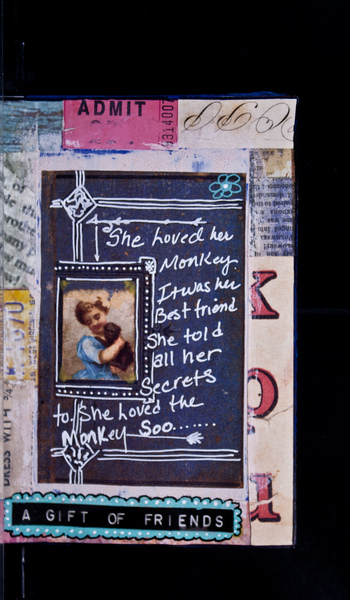 ADMIT
314007
She Loved her
Monkey.
It was her
Best friend
She told
all her
Secrets
to. She Loved the
Monkey Soo.......
K
O
DRESS WITH
A GIFT OF FRIENDS